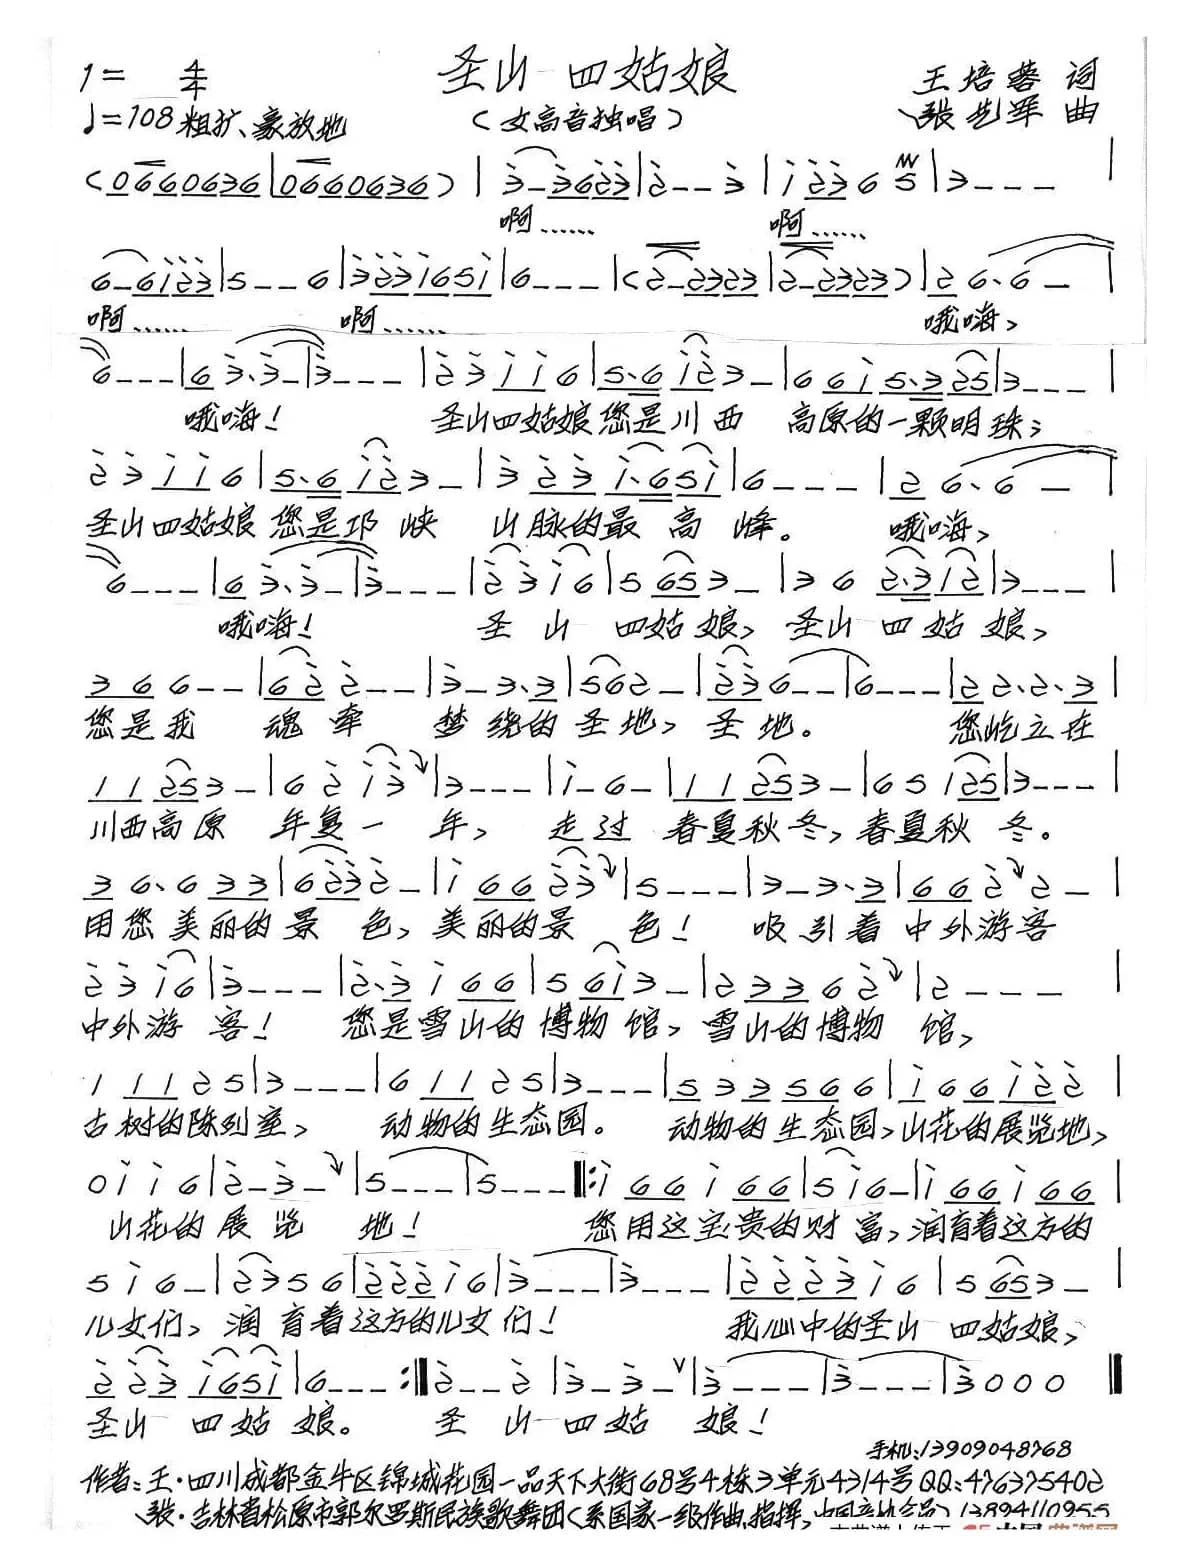 圣山一四姑娘
1= 4/4
王培蓉 词
♩=108 粗犷、豪放地
(女高音独唱)
张艺军 曲
(0660636|0660636)|3-3623|2--3|1236 5|3---|
啊…… 啊……
6-6123|5--6|3231651|6---|(2-2323|2-2323)|2 6·6-|
啊…… 啊…… 哦嗨、
6---|63·3-|3---|23116|5·6123-|6615·325|3---|
哦嗨! 圣山四姑娘您是川西 高原的一颗明珠;
23116|5·6123-|3231·651|6---|2 6·6-|
圣山四姑娘您是邛峡 山脉的最高峰。 哦嗨、
6---|63·3-|3---|2316|5653-|362·312|3---|
哦嗨! 圣山一四姑娘、圣山一四姑娘、
366--|622--|3-3·3|562-|236--|6---|22·2·3|
您是我 魂牵 梦绕的圣地、圣地。 您屹立在
11253-|6213|3---|1-6-|11253-|65125|3---|
川西高原 年复一年、 走过春夏秋冬,春夏秋冬。
36·633|62322-|16623|5---|3-3·3|6622-|
用您美丽的景色、美丽的景色! 吸引着中外游客
2316|3---|2·3166|5613-|23362|2---|
中外游客! 您是雪山的博物馆、雪山的博物馆、
11125|3---|61125|3---|533566|166122|
古树的陈列室、 动物的生态园。 动物的生态园、山花的展览地、
0116|2-3-|5---|5---‖:166166|516-|166166|
山花的展览地! 您用这宝贵的财富、润育着这方的
516-|2356|22216|3---|3---|222316|5653-|
儿女们、润育着这方的儿女们! 我心中的圣山一四姑娘、
2231651|6---:‖2--2|3-3-|3---|3---|3000‖
圣山一四姑娘。 圣山一四姑娘!
手机:13909048768
作者:王·四川成都金牛区锦城花园一品天下大街68号4栋3单元4314号QQ:476375402
张·吉林省松原市郭尔罗斯民族歌舞团(系国家一级作曲、指挥,中国音协会员)13894110955